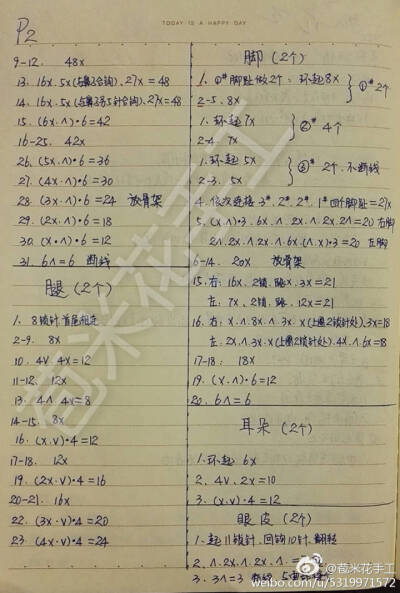 TODAY IS A HAPPY DAY
P2
9-12. 48x
13. 16x.5x(与第3合钩).27x=48
14. 16x.5x(与第3另5针合钩).27x=48
15. (6x.∧)·6=42
16-25. 42x
26. (5x.∧)·6=36
27. (4x.∧)·6=30
28. (3x.∧)·6=24 放骨架
29. (2x.∧)·6=18
30. (x.∧)·6=12
31. 6∧=6 断线
腿(2个)
1. 8锁针 首尾相连
2-9. 8x
10. 4v 4x=12
11-12. 12x
13. 4∧ 4v=8
14-15. 8x
16. (x.v)·4=12
17-18. 12x
19. (2x.v)·4=16
20-21. 16x
22. (3x.v)·4=20
23. (4x.v)·4=24
脚(2个)
1. ①#脚趾做2个: 环起8x
2-5. 8x
①# 2个
1. 环起7x
2-4 7x
②# 4个
1. 环起5x
2-3. 5x
③# 2个.不断线
4. 依次连接 3#.2#.2#.1#四个脚趾=27x
5. (x.∧)·3.6x.∧.2x.∧.2x.2∧=20 右脚
2∧.2x.∧.2x.∧.6x(∧.x)·3=20 左脚
6-14. 20x 放骨架
15. 右: 16x.2锁.跳x.3x=21
左: 7x.2锁.跳.12x=21
16. 右: x.∧.8x.∧.3x.x(上圈2锁针处).3x=18
左: 2x.∧.3x.x(上圈2锁针处).4x.∧.6x=18
17-18: 18x
19. (x.∧)·6=12
20. 6∧=6
耳朵(2个)
1. 环起6x
2. 4v.2x=10
3. (x.v)=12
眼皮(2个)
1. 起11锁针.回钩10针.翻转
2. ∧.2x.∧.2x.∧.
3. 3∧=3
苞米花手工
@苞米花手工
weibo.com/u/5319971572